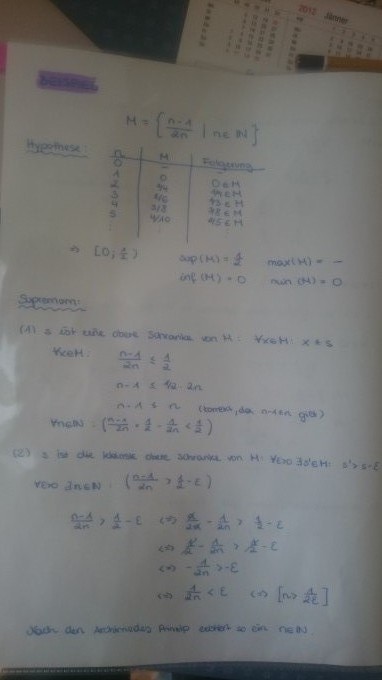 2012 Jänner
M = { n-1/2n | n ∈ ℕ }
Hypothese:
n | M | Folgerung
0 | - | -
1 | 0 | 0 ∈ M
2 | 1/4 | 1/4 ∈ M
3 | 2/6 | ∈ M
4 | 3/8 | 3/8 ∈ M
5 | 4/10 | ∈ M
⇒ [0; 1/2) sup(M) = 1/2 max(M) = -
inf(M) = 0 min(M) = 0
Supremum:
(1) s ist eine obere Schranke von M: ∀x∈M: x ≤ s
∀x∈M: n-1/2n ≤ 1/2
n-1 ≤ 1/2 · 2n
n-1 ≤ n (korrekt, da n-1<n gilt)
∀n∈ℕ: (n-1/2n = 1/2 - 1/2n < 1/2)
(2) s ist die kleinste obere Schranke von M: ∀ε>0 ∃s'∈M: s' > s-ε
∀ε>0 ∃n∈ℕ: (n-1/2n > 1/2 - ε)
n-1/2n > 1/2 - ε ⇔ n/2n - 1/2n > 1/2 - ε
⇔ 1/2 - 1/2n > 1/2 - ε
⇔ -1/2n > -ε
⇔ 1/2n < ε ⇔ [n > 1/2ε]
Nach dem Archimedes Prinzip existiert so ein n∈ℕ